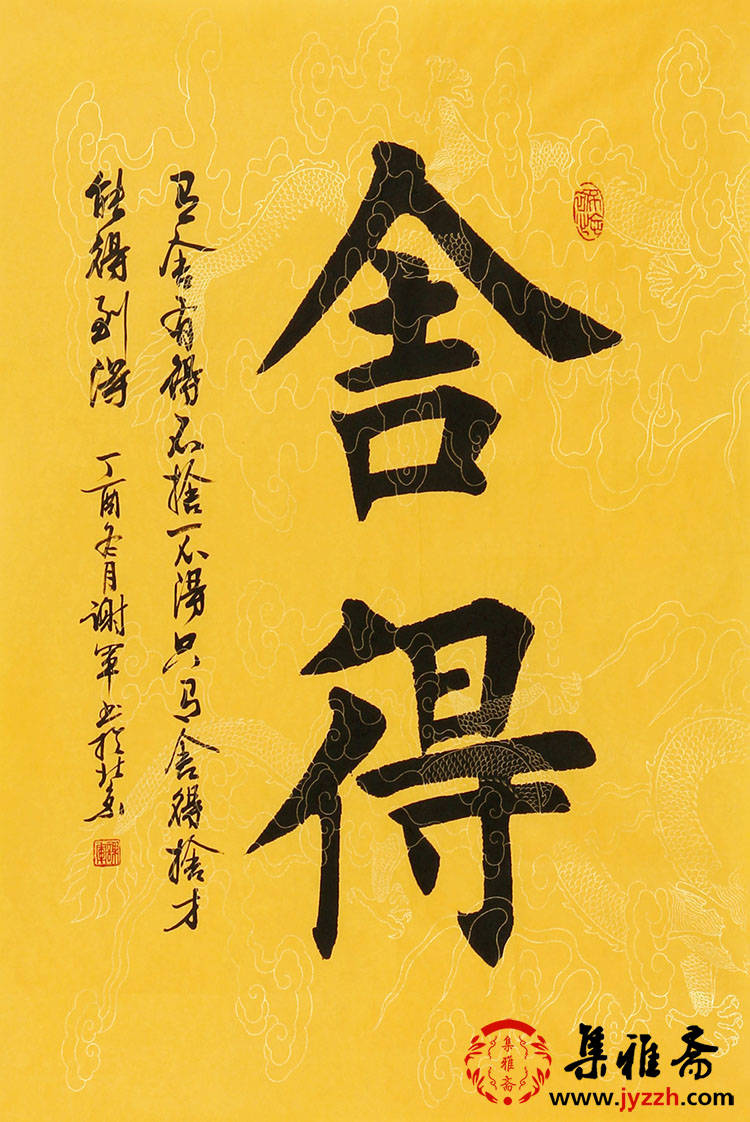 舍得
有舍有得不捨不得只有舍得捨才
能得到得 丁酉冬月谢军书於北京
集雅斋
集雅斋
www.jyzzh.com